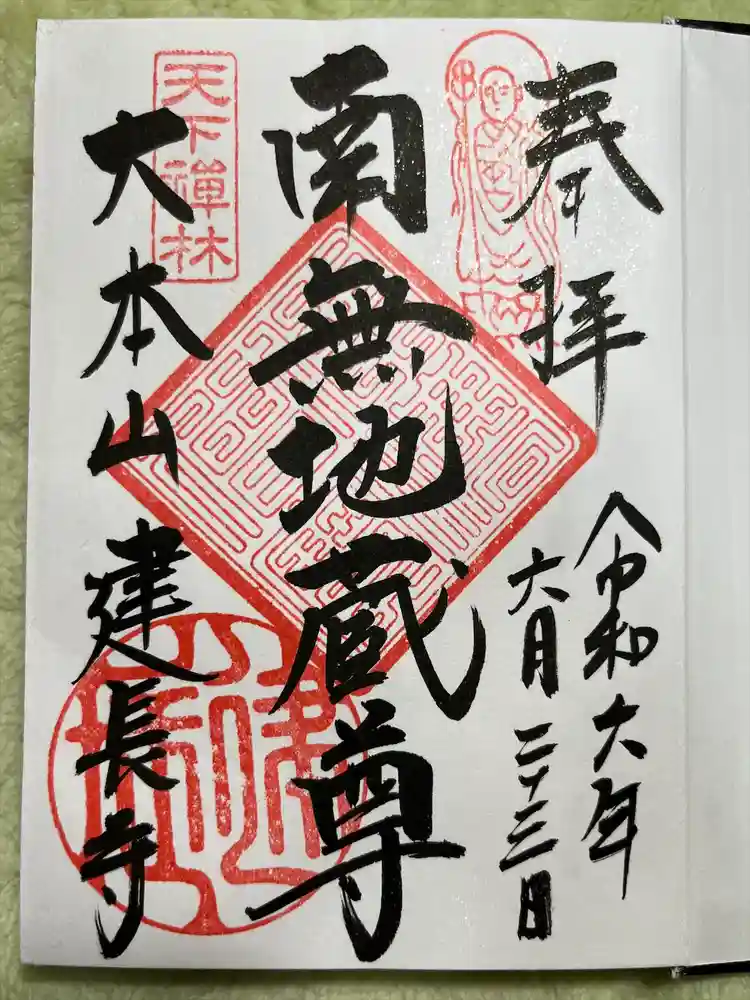 奉拝
令和六年
六月二十三日
南無地蔵尊
天下禅林
大本山建長寺